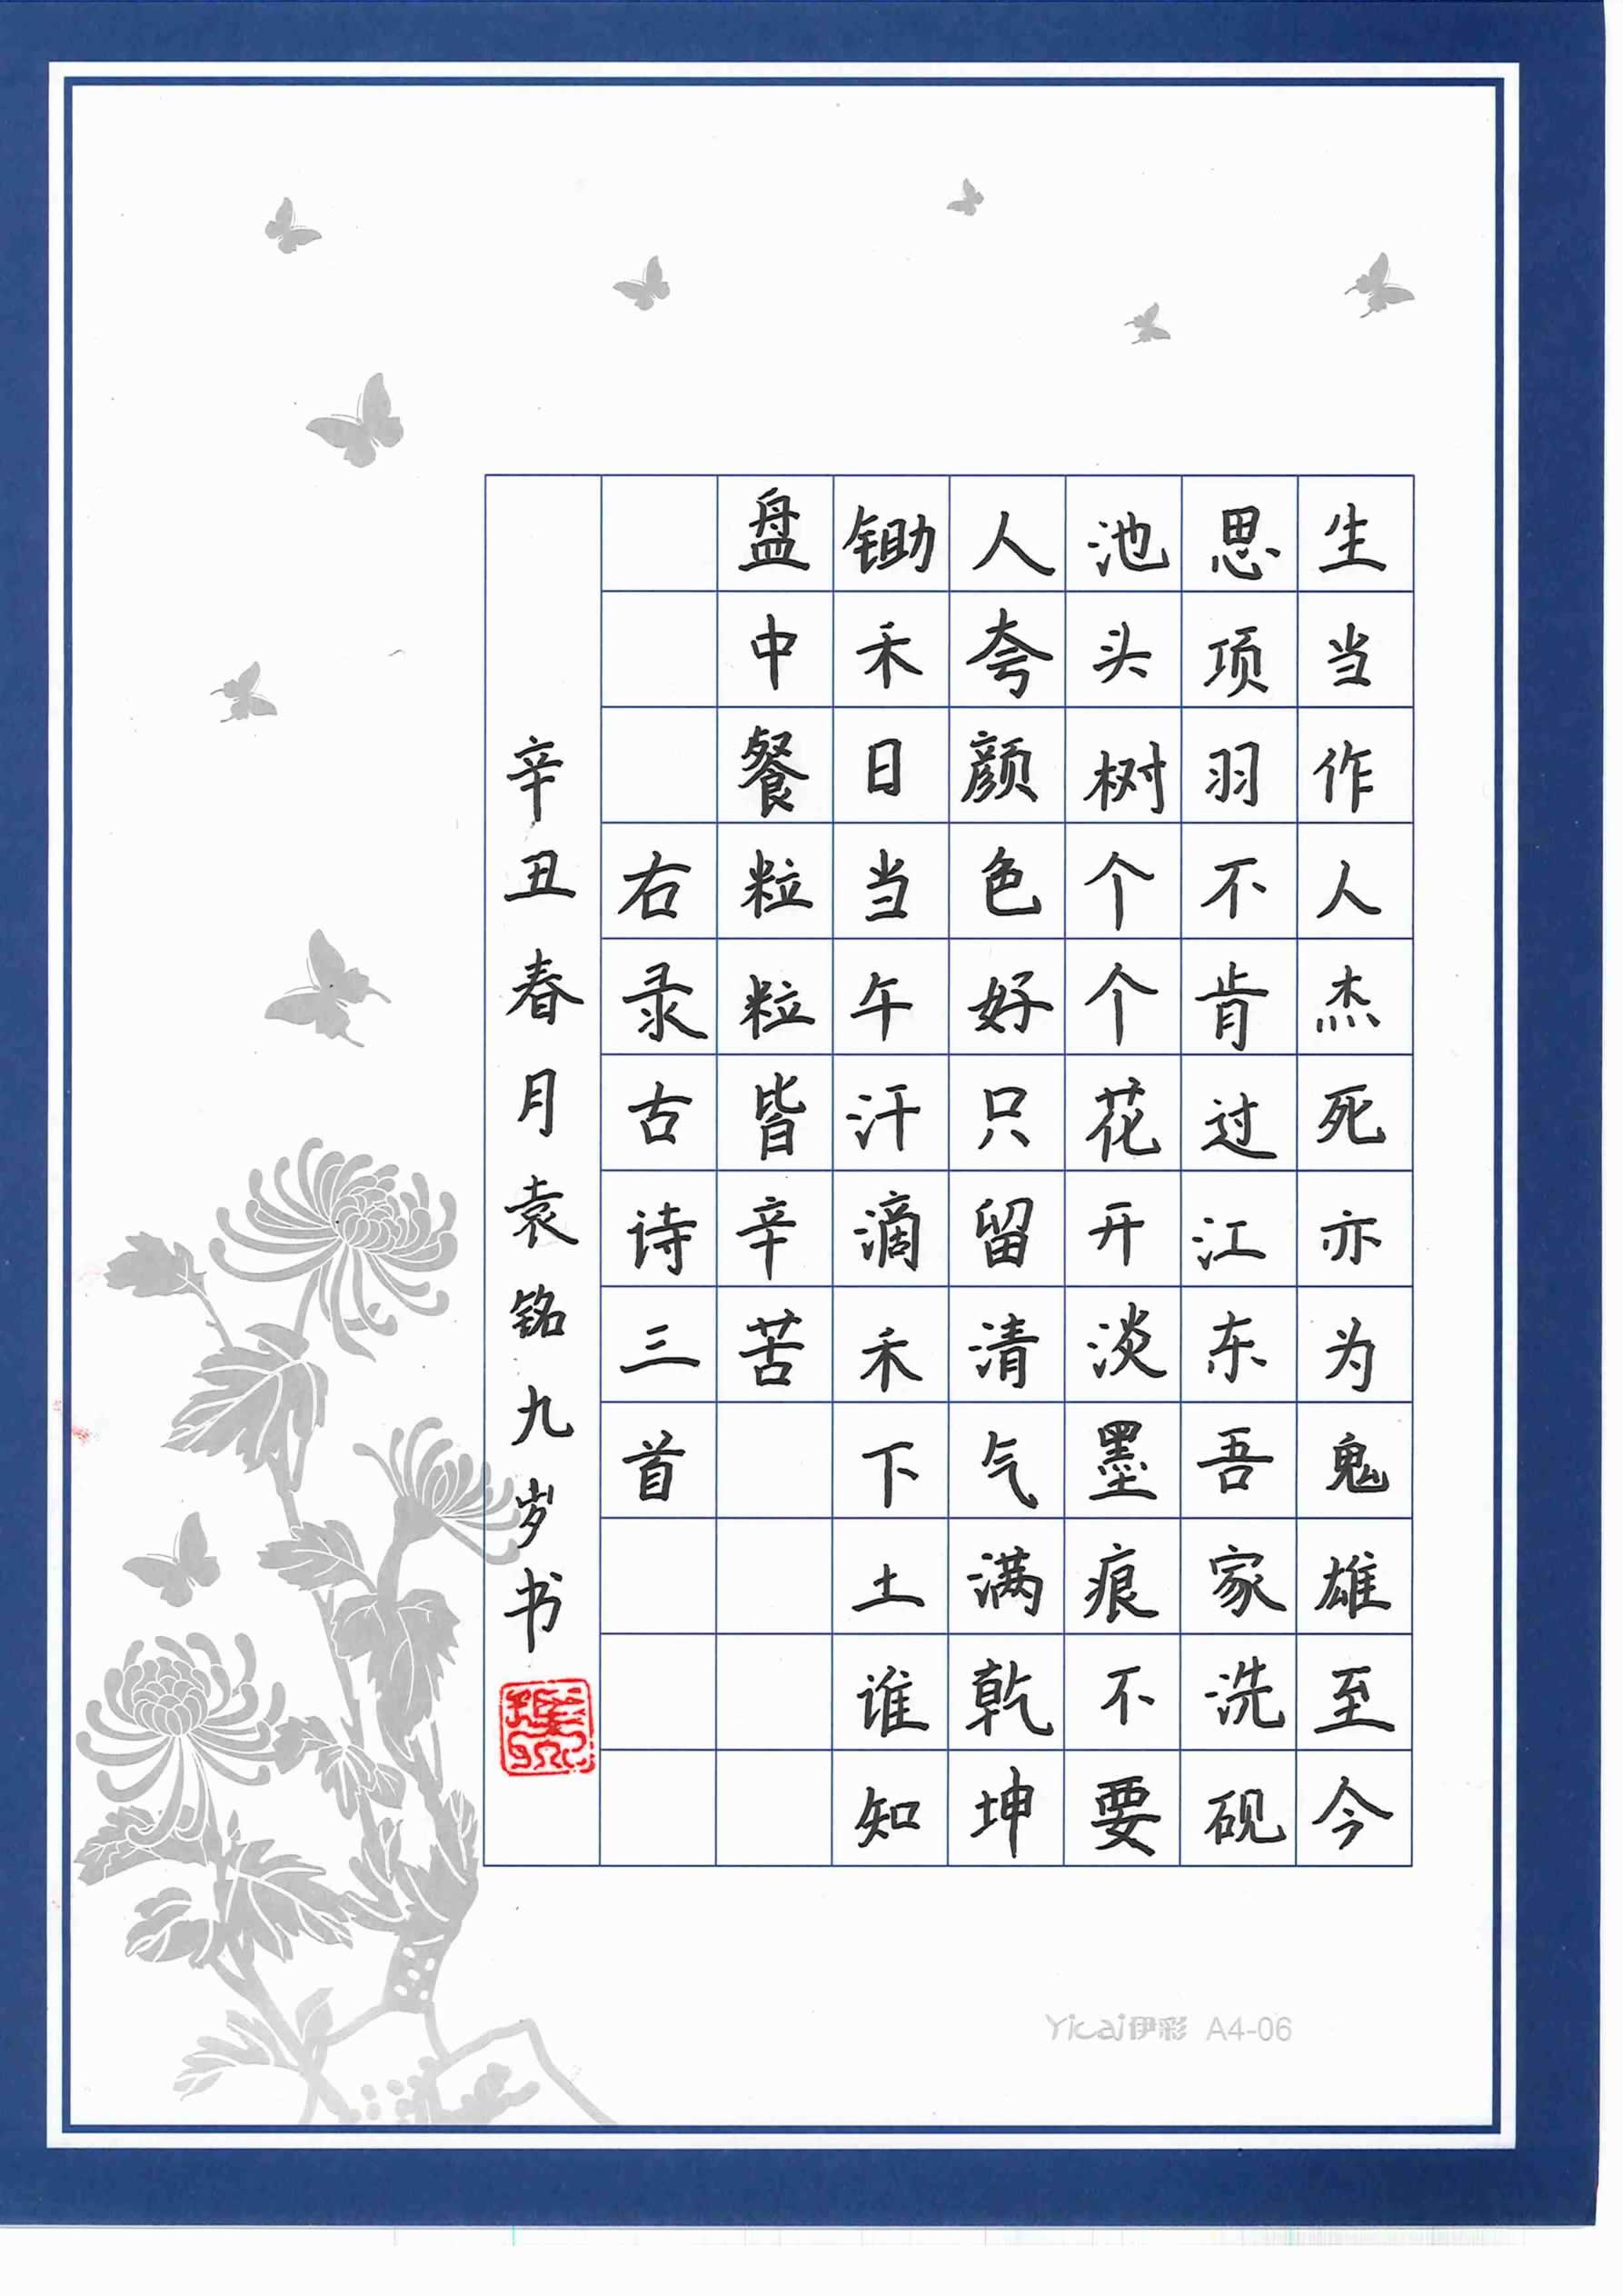 生当作人杰死亦为鬼雄至今
思项羽不肯过江东吾家洗砚
池头树个个花开淡墨痕不要
人夸颜色好只留清气满乾坤
锄禾日当午汗滴禾下土谁知
盘中餐粒粒皆辛苦
右录古诗三首
辛丑春月袁铭九岁书
Yicai伊彩 A4-06